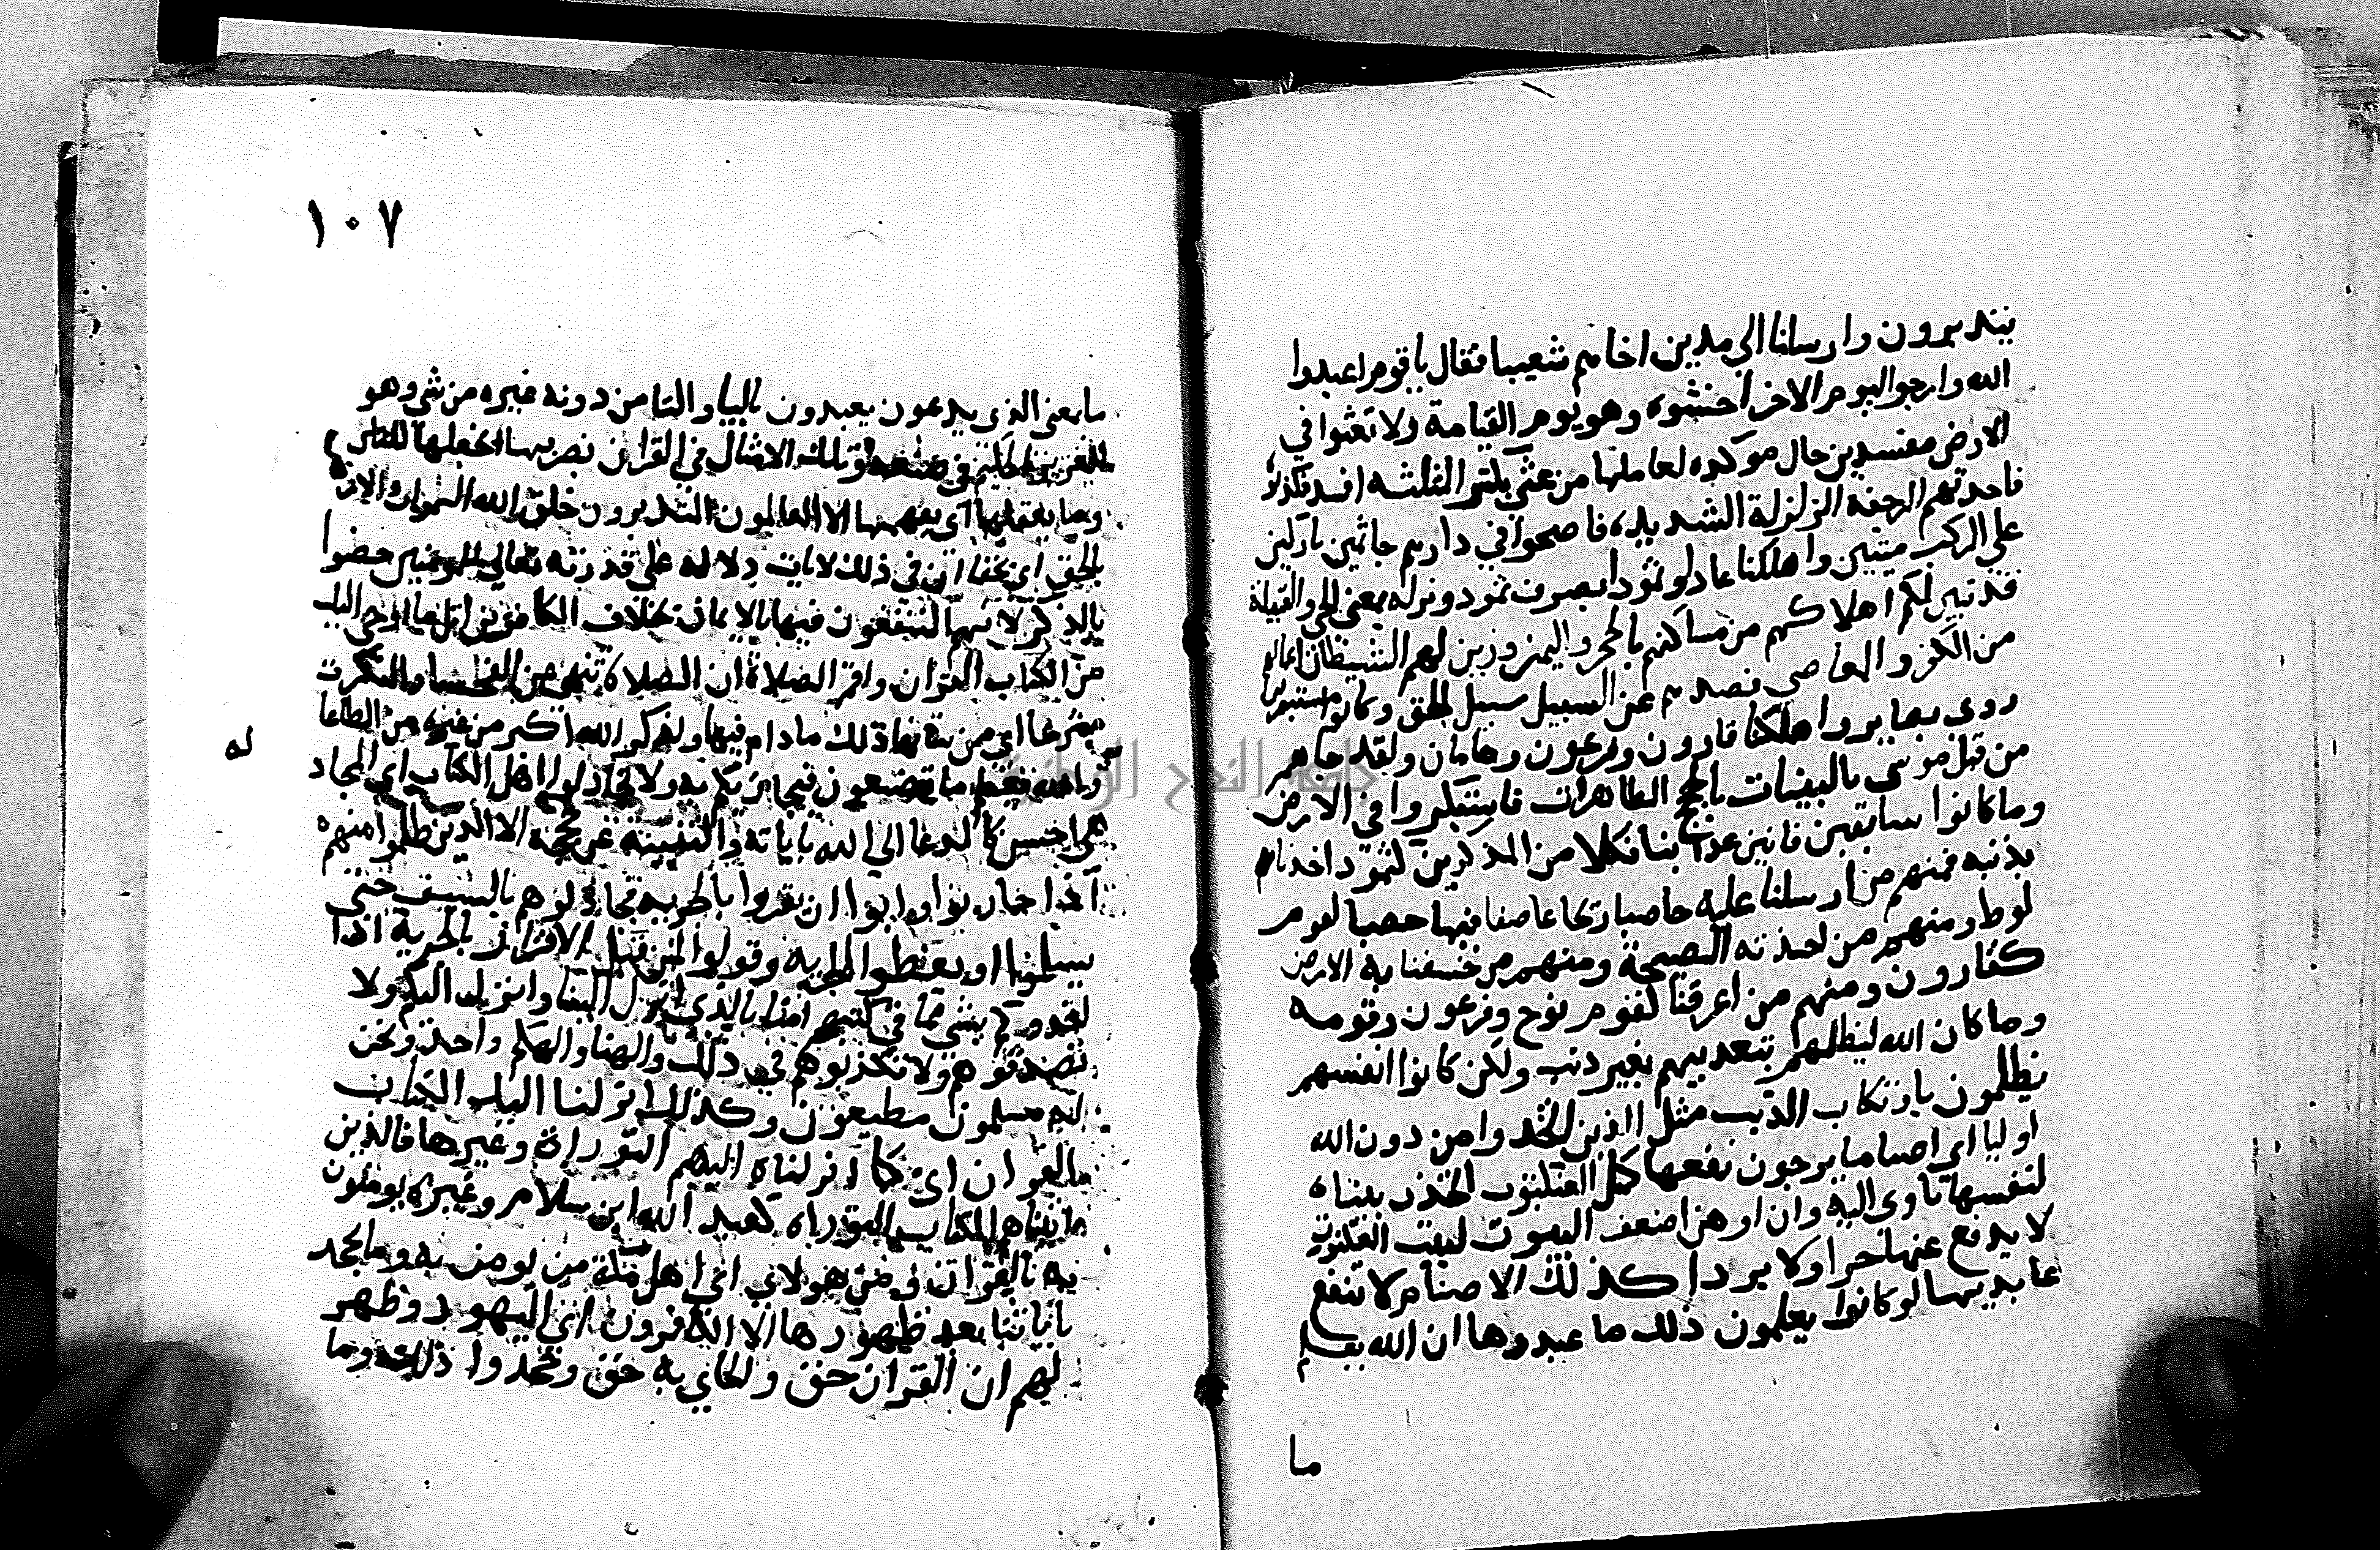 يتدبرون وارسلنا الي مدين اخاهم شعيبا فقال ياقوم اعبدوا
الله وارجوا اليوم الاخر اخشوه وهو يوم القيامة ولا تعثوا في
الارض مفسدين حال موكده لعاملها من عثي بكسر المثلثه افسد فكذبوه
فاخذتهم الرجفة الزلزلة الشديده فاصبحوا في دارهم جاثمين باركين
علي الركب ميتين واهلكنا عادا وثمودا بصرف ثمود وتركه بمعني الحي والقبيلة
قد تبين لكم اهلاكهم من مساكنهم بالحجر واليمن وزين لهم الشيطان اعمالهم
من الكفر والمعاصي فصدهم عن السبيل سبيل الحق وكانوا مستبصرين
ذوي بصاير واهلكنا قارون وفرعون وهامان ولقد جاهم
من قبل موسي بالبينات بالحجج الظاهرات فاستكبروا في الارض
وما كانوا سابقين فاتين عذابنا فكلا من المذكورين اخذنا
بذنبه فمنهم من ارسلنا عليه حاصبا ريحا عاصفا فيها حصبا لقوم
لوط ومنهم من اخذته الصيحة كثمود ومنهم من خسفنا به الارض
كقارون ومنهم من اغرقنا كقوم نوح وفرعون وقومه
وما كان الله ليظلمهم بتعذيبهم بغير ذنب ولكن كانوا انفسهم
يظلمون بارتكاب الذنب مثل الذين اتخذوا من دون الله
اوليا اي اصناما يرجون نفعها كمثل العنكبوت اتخذت بيتا
لنفسها تاوي اليه وان اوهن اضعف البيوت لبيت العنكبوت
لا يدفع عنها حرا ولا بردا كذلك الاصنام لا تنفع
عابديها لو كانوا يعلمون ذلك ما عبدوها ان الله يعلم
ما
١٠٧
ما بمعني الذي يدعون يعبدون باليا والتا من دونه غيره من شي وهو
العزيز الحكيم في صنعه وتلك الامثال في القران نضربها نجعلها للناس
وما يعقلها اي يفهمها الا العالمون المتدبرون خلق الله السموات والارض
بالحق اي محقا ان في ذلك لايات دلاله علي قدرته تعالي للمومنين خصوا
بالذكر لانهم المنتفعون فيها بالايمان بخلاف الكافرين اتل ما اوحي اليك
من الكتاب القران واقم الصلاة ان الصلاة تنهي عن الفحشا والمنكر
شرعا اي من شانها ذلك ما دام فيها ولذكر الله اكبر من غيره من الطاعات
له
والله يعلم ما تصنعون فيجازيكم به ولا تجادلوا اهل الكتاب اي المجاد
هي احسن كالدعا الي الله باياته والتنبيه علي حججه الا الذين ظلموا منهم
اذا حاربوا وابوا ان يقروا بالجزيه فجادلوهم بالسيف حتي
يسلموا او يعطوا الجزيه وقولوا لمن قبل الاقرار بالجزية اذا
اخبروكم بشي مما في كتبهم امنا بالذي انزل الينا وانزل اليكم ولا
تصدقوهم ولا تكذبوهم في ذلك والهنا والهكم واحد ونحن
له مسلمون مطيعون وكذلك انزلنا اليك الكتاب
القران اي كما انزلناه اليهم التوراة وغيرها فالذين
اتيناهم الكتاب التوراه كعبد الله ابن سلام وغيره يومنون
به بالقران ومن هولاي اي اهل مكة من يومن به وما يجحد
باياتنا بعد ظهورها الا الكافرون اي اليهود وظهر
لهم ان القران حق والجاي به حق وجحدوا ذلك وما